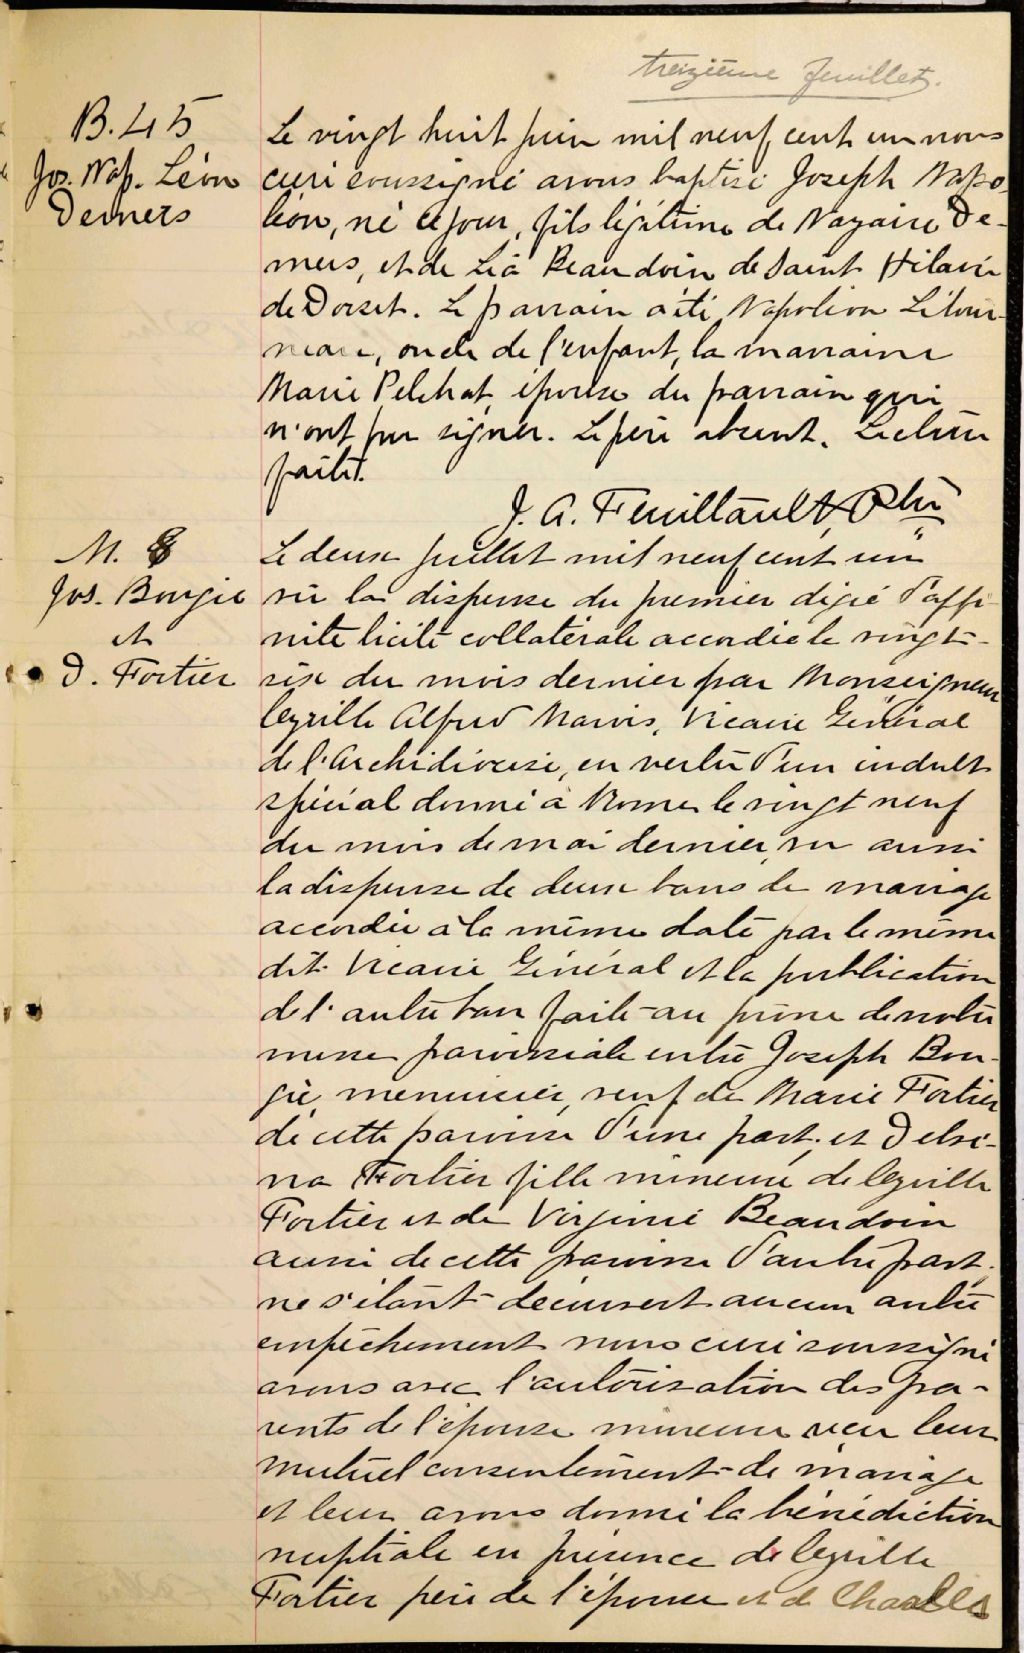 treizième feuillet.
B. 45
Jos. Nap. Léon
Demers
Le vingt huit juin mil neuf cent un nous
curé soussigné avons baptisé Joseph Napo-
léon, né ce jour, fils légitime de Nazaire De-
mers, et de Léa Beaudoin de Saint Hilaire
de Dorset. Le parrain a été Napoléon Létour-
neau, oncle de l'enfant, la marraine
Marie Pelchat, épouse du parrain qui
n'ont pu signer. Le père absent. Lecture
faite.
J. A. Feuillault, Ptre
M. 8
Jos. Bougie
et
D. Fortier
Le deux juillet mil neuf cent un
vu la dispense du premier degré d'affi-
nité licite collatérale accordée le vingt-
six du mois dernier par Monseigneur
Cyrille Alfred Marois, Vicaire Général
de l'Archidiocèse, en vertu d'un indult
spécial donné à Rome le vingt neuf
du mois de mai dernier, vu aussi
la dispense de deux bans de mariage
accordée à la même date par le même
dit Vicaire Général et la publication
de l'autre ban faite au prône de notre
messe paroissiale entre Joseph Bou-
gie, menuisier, veuf de Marie Fortier
de cette paroisse d'une part, et Delvi-
na Fortier fille mineure de Cyrille
Fortier et de Virginie Beaudoin
aussi de cette paroisse d'autre part,
ne s'étant découvert aucun autre
empêchement nous curé soussigné
avons avec l'autorisation des pa-
rents de l'épouse mineure reçu leur
mutuel consentement de mariage
et leur avons donné la bénédiction
nuptiale en présence de Cyrille
Fortier père de l'épouse et de Charles